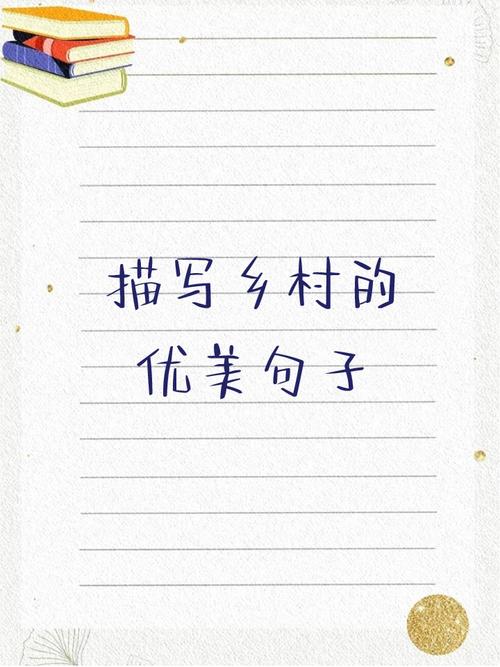 描写乡村的
优美句子